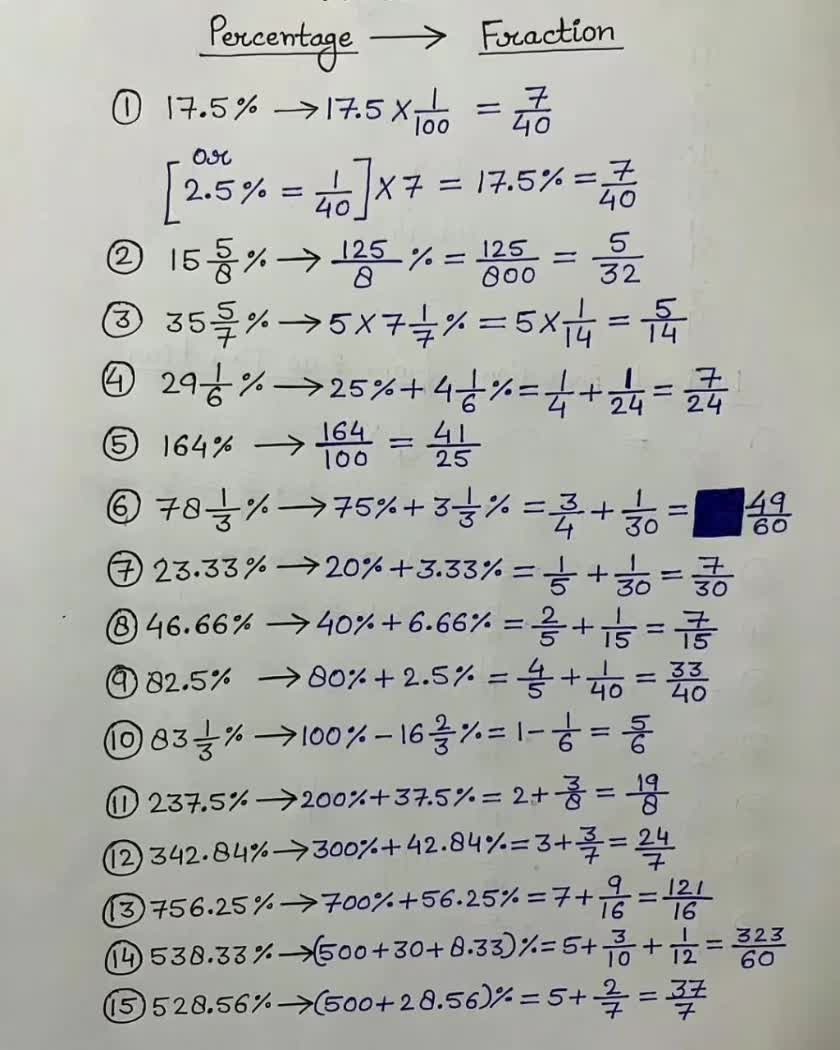 Percentage → Fraction
① 17.5% → 17.5 × 1/100 = 7/40
or
[2.5% = 1/40] × 7 = 17.5% = 7/40
② 15 5/8 % → 125/8 % = 125/800 = 5/32
③ 35 5/7 % → 5 × 7 1/7 % = 5 × 1/14 = 5/14
④ 29 1/6 % → 25% + 4 1/6 % = 1/4 + 1/24 = 7/24
⑤ 164% → 164/100 = 41/25
⑥ 78 1/3 % → 75% + 3 1/3 % = 3/4 + 1/30 = 49/60
⑦ 23.33% → 20% + 3.33% = 1/5 + 1/30 = 7/30
⑧ 46.66% → 40% + 6.66% = 2/5 + 1/15 = 7/15
⑨ 82.5% → 80% + 2.5% = 4/5 + 1/40 = 33/40
⑩ 83 1/3 % → 100% - 16 2/3 % = 1 - 1/6 = 5/6
⑪ 237.5% → 200% + 37.5% = 2 + 3/8 = 19/8
⑫ 342.84% → 300% + 42.84% = 3 + 3/7 = 24/7
⑬ 756.25% → 700% + 56.25% = 7 + 9/16 = 121/16
⑭ 538.33% → (500 + 30 + 8.33)% = 5 + 3/10 + 1/12 = 323/60
⑮ 528.56% → (500 + 28.56)% = 5 + 2/7 = 37/7